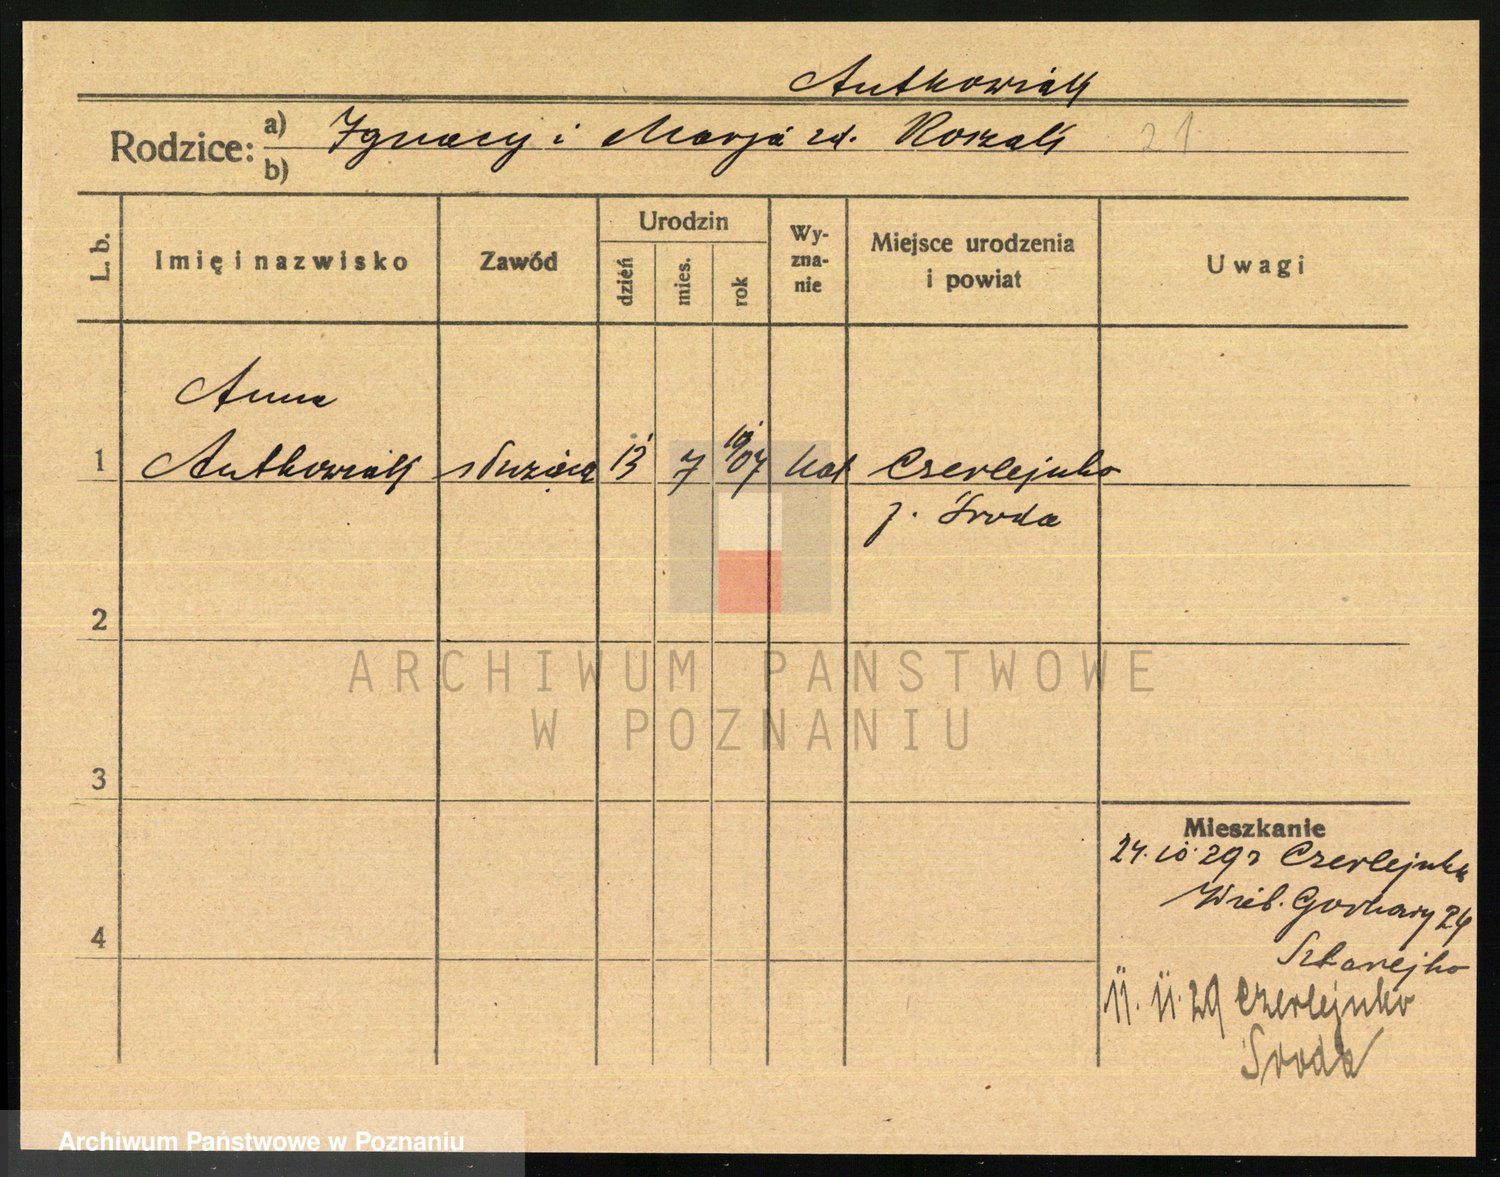 Antkowiak
Rodzice: a) Ignacy i Marja zd. Rozak 21
b)
L. b.
Imię i nazwisko
Zawód
Urodzin
dzień
mies.
rok
Wy-
zna-
nie
Miejsce urodzenia
i powiat
Uwagi
Anna
1 Antkowiak służąca 13 7 1907 kat Czerlejnko
p. Środa
2
ARCHIWUM PAŃSTWOWE
W POZNANIU
3
Mieszkanie
24. 10. 29 z Czerlejnka
Gorkary 24
4
11. 11. 29 Czerlejnko
Środa
Archiwum Państwowe w Poznaniu